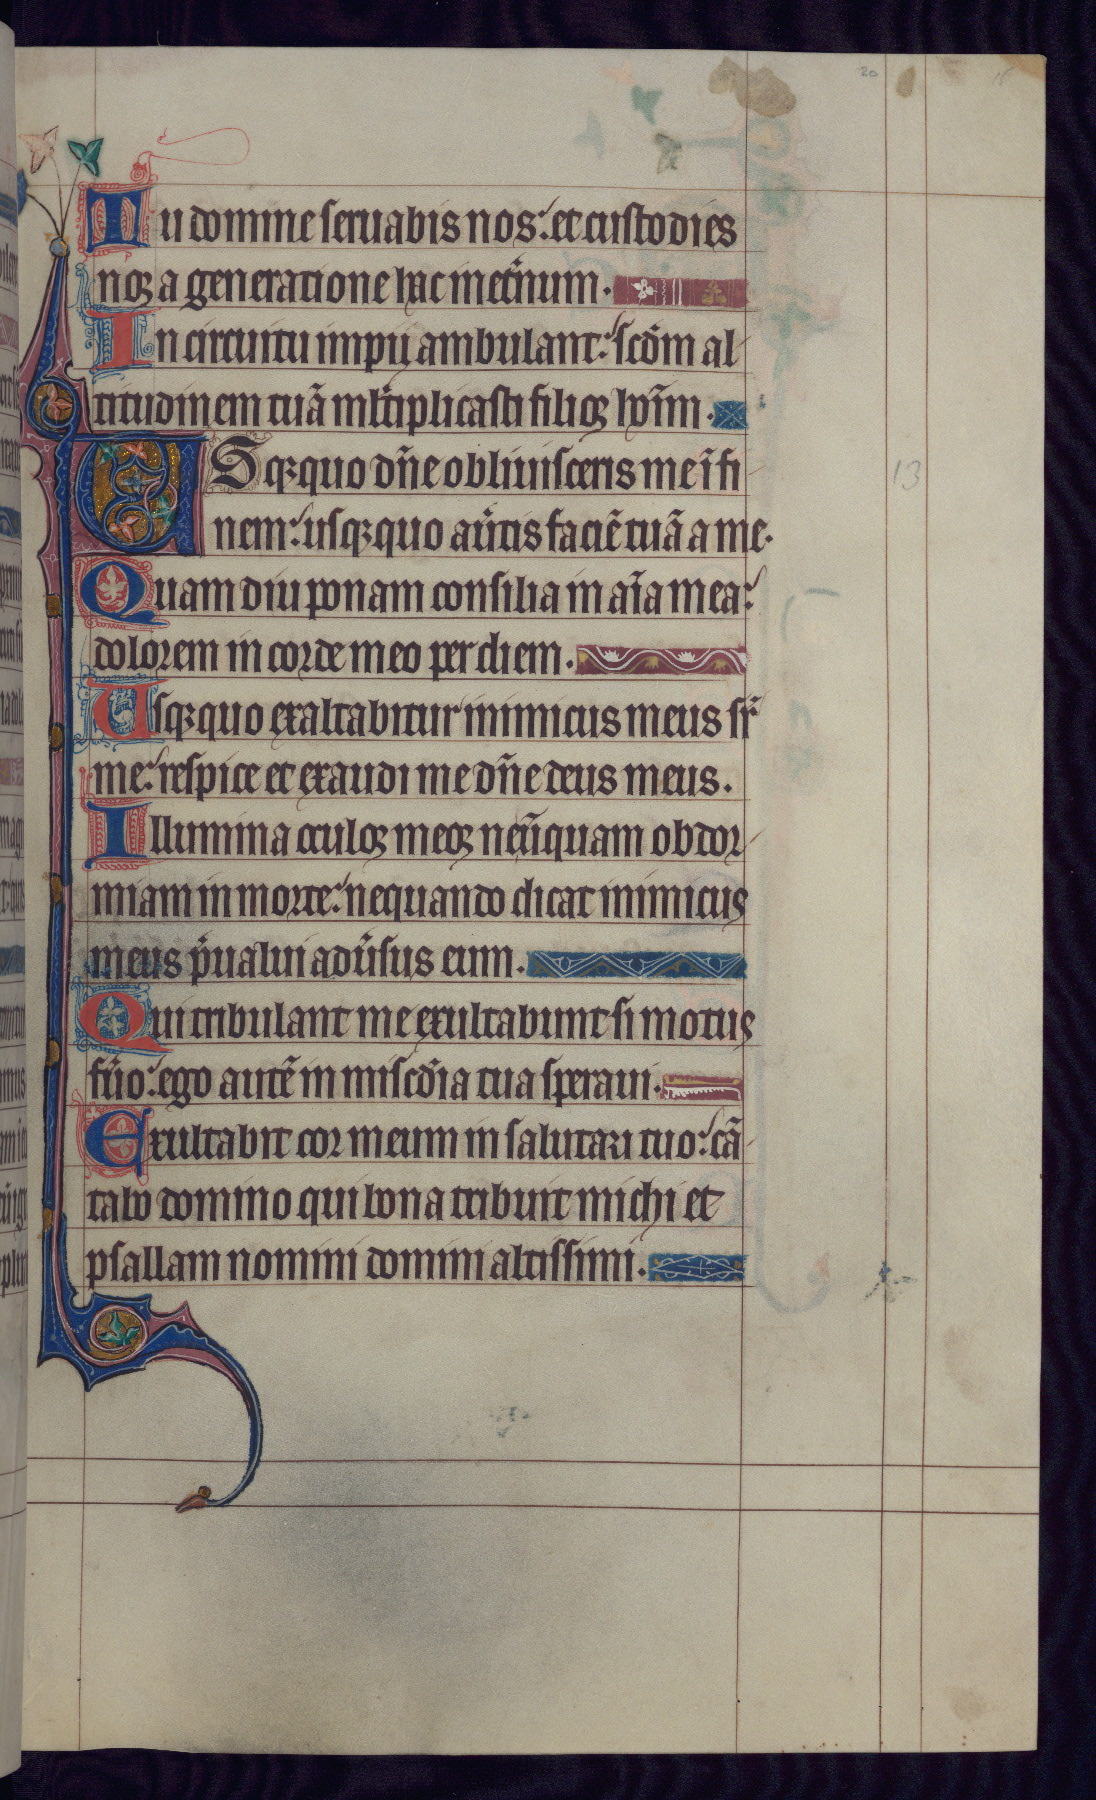 20
15
Tu domine seruabis nos: et custodies
noꝫ a generatione hac inet̃num.
In circuitu impij ambulant: scd̃m al
titudinem tuã ml̃tiplicasti filioꝫ hoĩm.
USqꝫquo dñe obliuisceris me ĩ fi
nem: usqꝫquo au̾tis faciẽ tuã a me.
Quam diu ponam consilia in aĩa mea:
dolorem in corde meo per diem.
Usqꝫquo exaltabitur inimicus meus sr̃
me: respice et exaudi me dñe deus meus.
Illumina oculoꝫ meoꝫ neũquam obdor
miam in morte: nequando dicat inimicus
meus p̾ualui adu̾sus eum.
Qui tribulant me exultabunt si motus
fũo: ego autẽ in miscd̃ia tua speraui.
Exultabit cor meum in salutari tuo: cã
tabo domino qui bona tribuit michi et
psallam nomini domini altissimi.
13